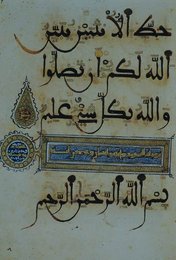 حظ الأنثيين يبين
الله لكم أن تضلوا
والله بكل شيء عليم
بسم الله الرحمن الرحيم